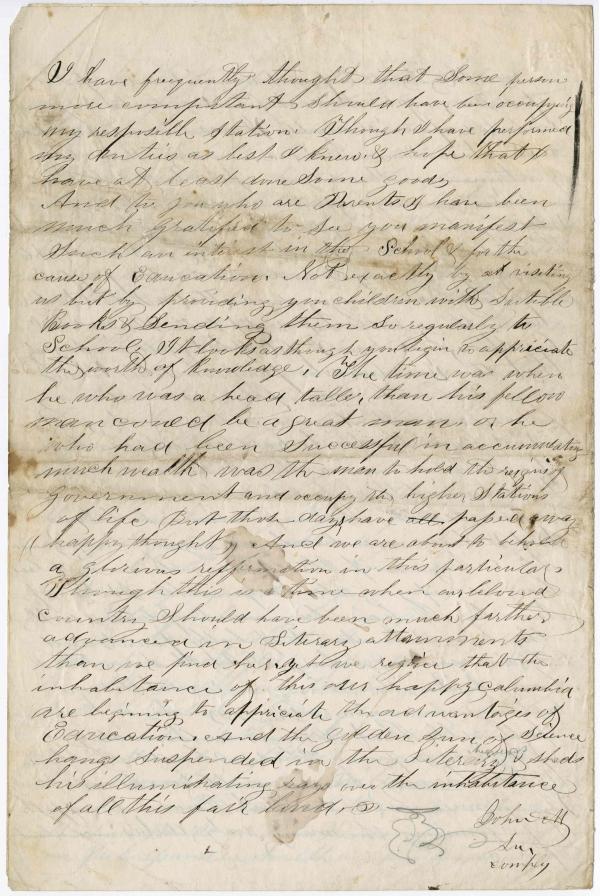 I have frequently thought that Some person
more compintant Should have been occupying
my resposible Station. Though I have performed
my duties as best I knew. & hope that I
have at least done Some good,
And to you who are Parents I have been
much gratified to See you manifest
Such an intrest in the School & for the
cause of Education. Not exactly by visiting
us but by providing you children with Sutible
Books & Sending them So regularly to
School, It looks as though you begin to appreciate
the worth of Knowledge. The time was when
he who was a head taller, than his fellow
man could be a great man, or he
who had been Successful in accumulating
much wealth was the man to hold the reigns of
government and occupy the higher Stations
of life But those days have all paped away
happy thought, And we are about to behold
a glorious refformation in this particular,
Though this is a time when our beloved
country Should have been much farther
advanced in Literary attainments
than we find her, yet we rejoice that the
inhabitance of this our happy Columbia
are begining to appriciate the advantages of
Education. And the golden Sun of Science
hangs Suspended in the Literary & sheds
his illuminating rays over the inhabitance
of all this fair land.
John